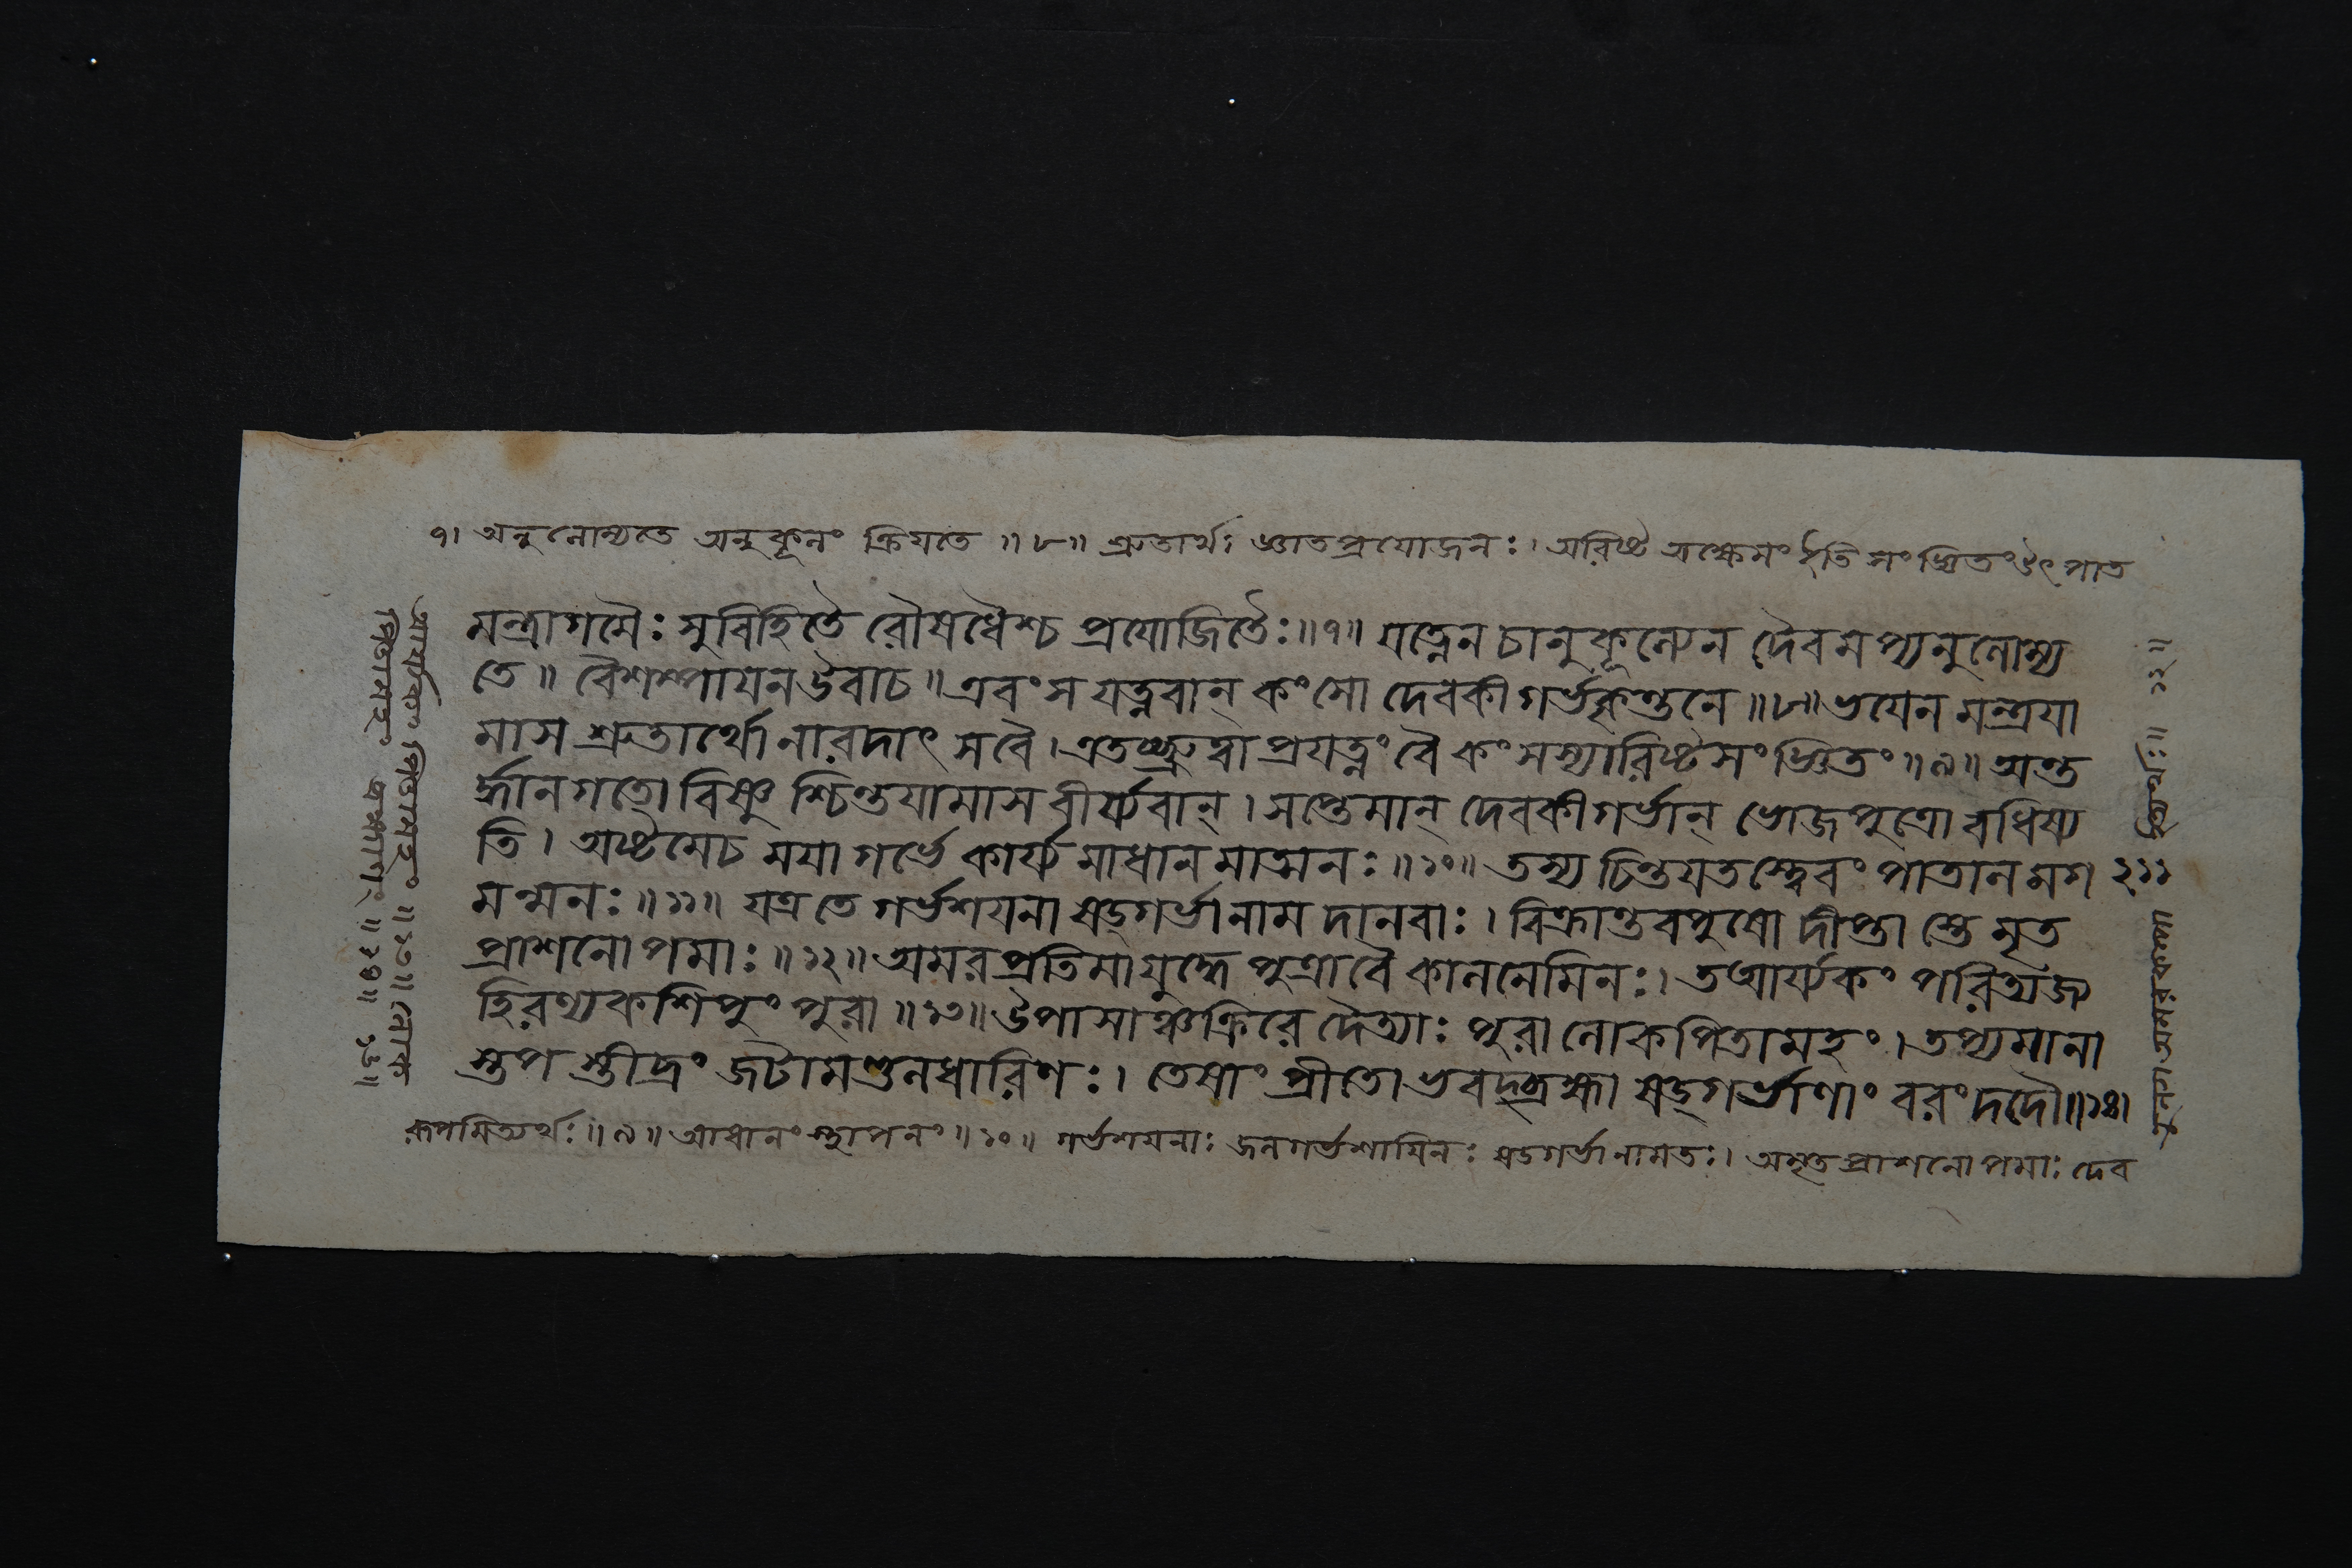 ৭। অনুলোম্যতে অনুকূলং ক্রিয়তে ॥ ৮॥ শ্রুতার্থঃ জ্ঞাতপ্রযোজনঃ। অরিষ্ট অক্ষেমং ইতি সংজ্ঞিতং উৎপাত
মন্ত্রাগমৈঃ সুবিহিতৈ রৌষধৈশ্চ প্রযোজিতৈঃ॥৭॥ যত্নেন চানুকূল্যেন দৈবমপ্যনুলোম্য
তে॥ বৈশম্পাযন উবাচ॥ এবং স যত্নবান্ কংসো দেবকীগর্ভকৃন্তনে॥৮॥ ভযেন মন্ত্রযা
মাস শ্রুতার্থো নারদাৎ সবৈ। এতচ্ছ্রুত্বা প্রযত্নং বৈ কংসস্যারিষ্টসংজ্ঞিতং॥৯॥ অন্ত
র্দ্ধানগতো বিষ্ণু শ্চিন্তযামাস বীর্য্যবান্। সপ্তেমান্ দেবকীগর্ভান্ ভোজপুত্রো বধিষ্য
তি। অষ্টমেচ মযা গর্ভে কার্য্য মাধান মাত্মনঃ॥১০॥ তস্য চিন্তযতস্ত্বেবং পাতাল মগ
মন্মনঃ॥১১॥ যত্র তে গর্ভশযনা ষড্গর্ভানাম দানবাঃ। বিক্রান্তবপুষো দীপ্তা স্তে মৃত
প্রাশনোপমাঃ॥১২॥ অমরপ্রতিমাযুদ্ধে পুত্রাবৈ কালনেমিনঃ। তআর্য্যকং পরিত্যজ্য
হিরণ্যকশিপুং পুরা॥১৩॥ উপাসাঞ্চক্রিরে দৈত্যাঃ পুরা লোকপিতামহং। তপ্যমানা
স্তপ স্তীব্রং জটামণ্ডলধারিণঃ। তেষাং প্রীতোভবদ্ব্রহ্মা ষড্গর্ভাণাং বরং দদৌ॥১৪।
রূপমিত্যর্থঃ॥৯॥ আধানং স্থাপনং॥১০॥ গর্ভশযনাঃ জলগর্ভশাযিনঃ ষড্গর্ভানামতঃ। অমৃতপ্রাশনোপমাঃ দেব
২১১
আর্য্যকং পিতামহং ॥১৩॥ লোক
পিতামহং ব্রহ্মাণং ॥১৪॥